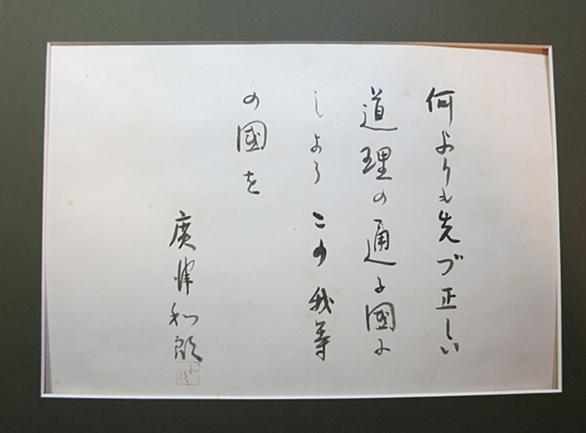 何よりも先づ正しい
道理の通る國に
しよう この我等
の國を
廣津和郎